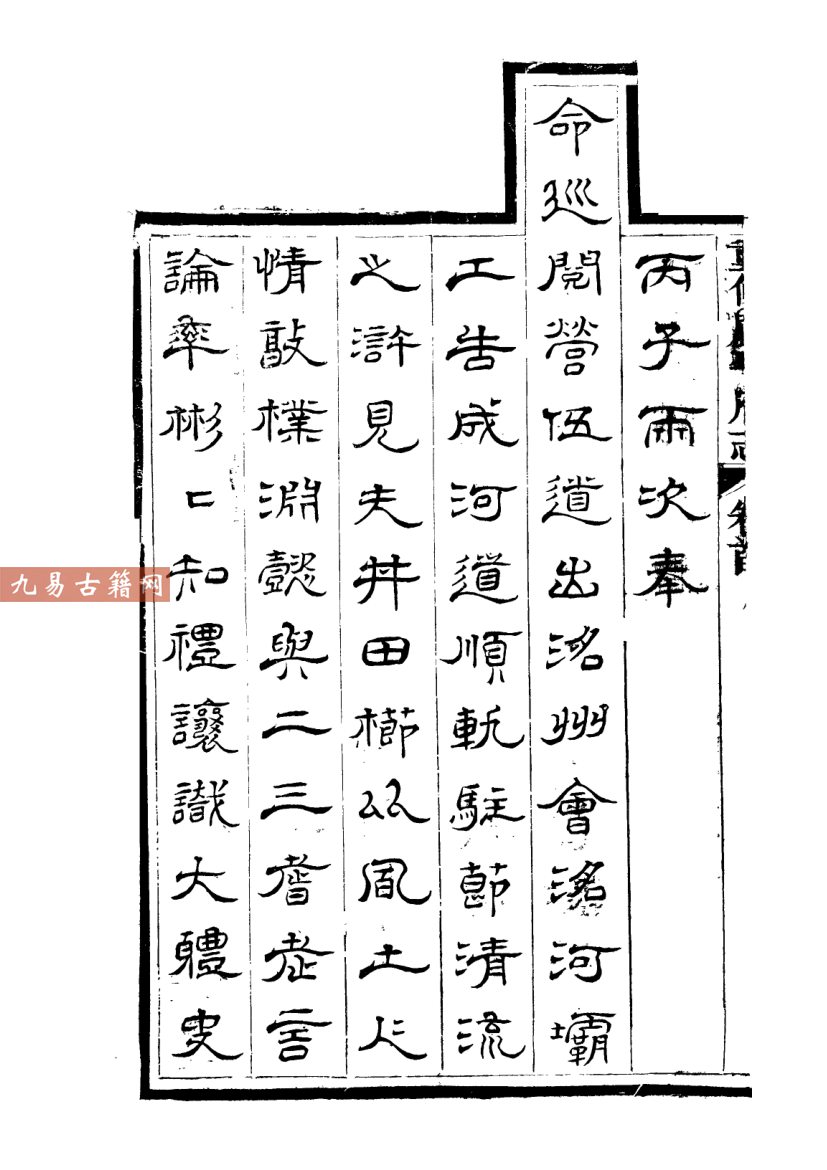 丙子兩次奉
命巡閱營伍道出洺州會滏河壩
工告成河道順軌駐節清流
之滸見夫井田櫛比風土人
情敦樸淵懿與二三耆老言
論率彬〻知禮讓識大體吏
九易古籍网